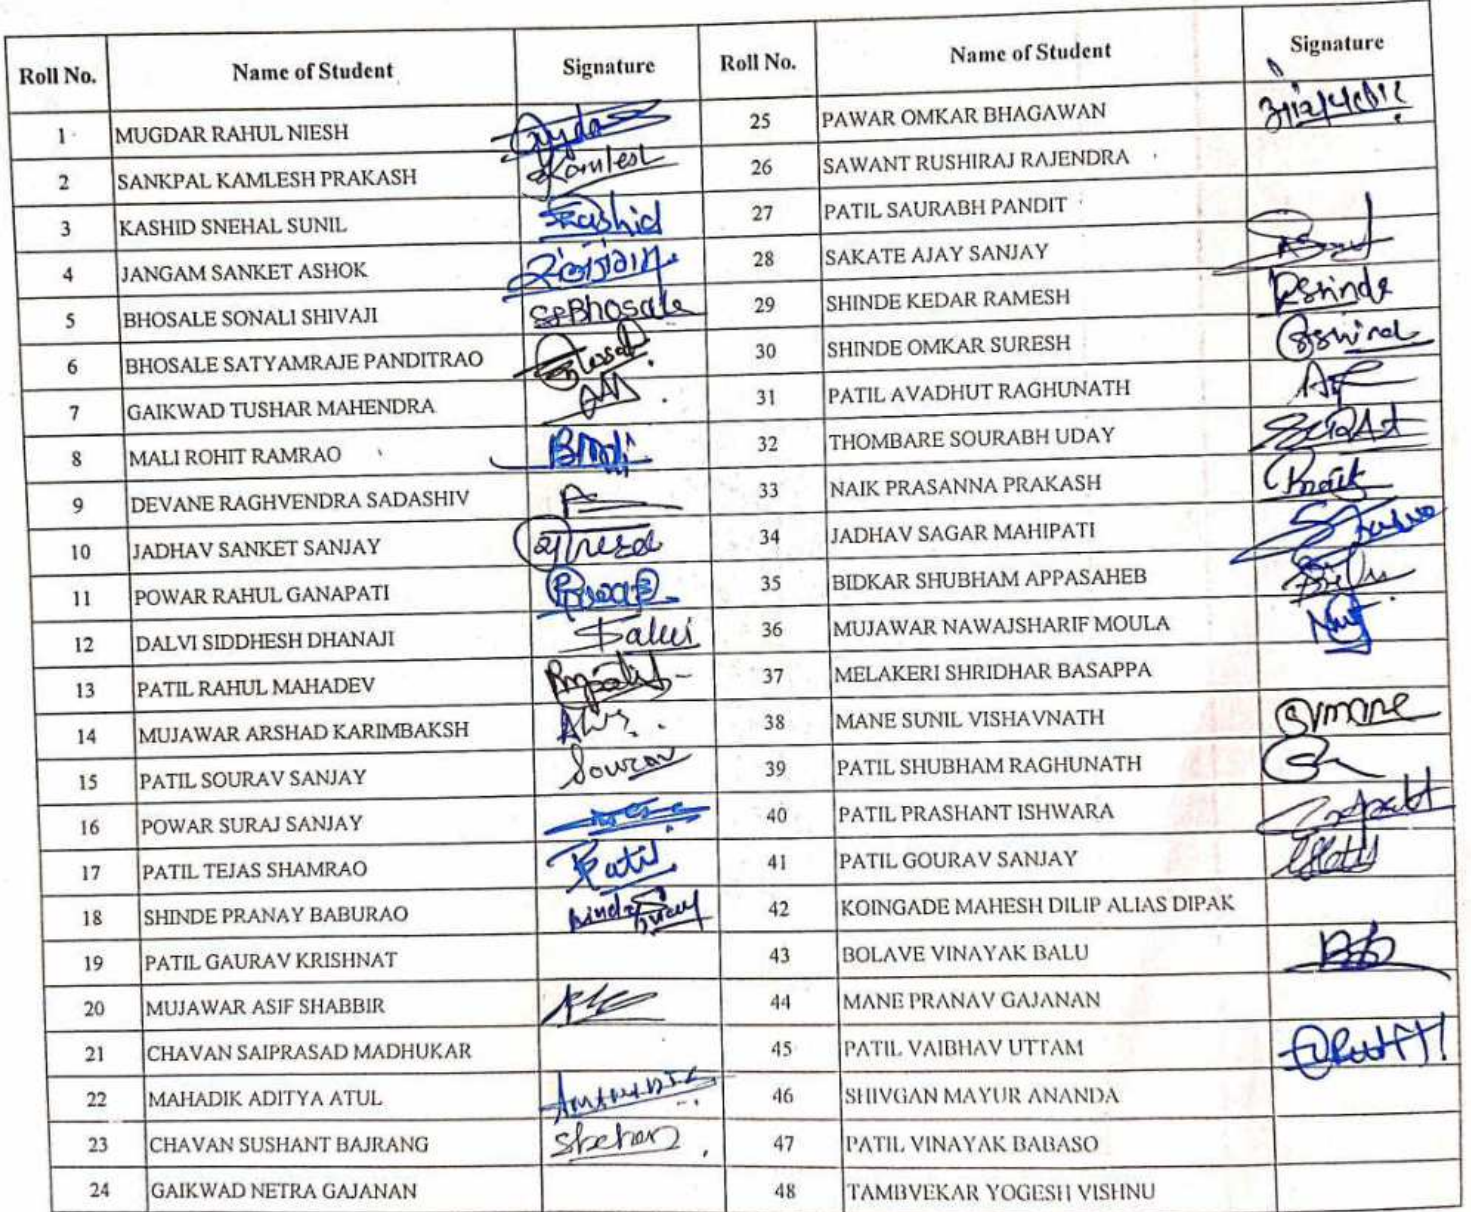 Roll No. Name of Student Signature Roll No. Name of Student Signature
1 MUGDAR RAHUL NIESH 25 PAWAR OMKAR BHAGAWAN
2 SANKPAL KAMLESH PRAKASH Kamlesh 26 SAWANT RUSHIRAJ RAJENDRA
3 KASHID SNEHAL SUNIL Kashid 27 PATIL SAURABH PANDIT
4 JANGAM SANKET ASHOK 28 SAKATE AJAY SANJAY
5 BHOSALE SONALI SHIVAJI SSBhosale 29 SHINDE KEDAR RAMESH KShinde
6 BHOSALE SATYAMRAJE PANDITRAO 30 SHINDE OMKAR SURESH
7 GAIKWAD TUSHAR MAHENDRA 31 PATIL AVADHUT RAGHUNATH
8 MALI ROHIT RAMRAO 32 THOMBARE SOURABH UDAY
9 DEVANE RAGHVENDRA SADASHIV 33 NAIK PRASANNA PRAKASH Pnaik
10 JADHAV SANKET SANJAY 34 JADHAV SAGAR MAHIPATI
11 POWAR RAHUL GANAPATI 35 BIDKAR SHUBHAM APPASAHEB
12 DALVI SIDDHESH DHANAJI Dalvi 36 MUJAWAR NAWAJSHARIF MOULA
13 PATIL RAHUL MAHADEV 37 MELAKERI SHRIDHAR BASAPPA
14 MUJAWAR ARSHAD KARIMBAKSH 38 MANE SUNIL VISHAVNATH SVmane
15 PATIL SOURAV SANJAY Sourav 39 PATIL SHUBHAM RAGHUNATH
16 POWAR SURAJ SANJAY 40 PATIL PRASHANT ISHWARA
17 PATIL TEJAS SHAMRAO Patil 41 PATIL GOURAV SANJAY
18 SHINDE PRANAY BABURAO 42 KOINGADE MAHESH DILIP ALIAS DIPAK
19 PATIL GAURAV KRISHNAT 43 BOLAVE VINAYAK BALU
20 MUJAWAR ASIF SHABBIR 44 MANE PRANAV GAJANAN
21 CHAVAN SAIPRASAD MADHUKAR 45 PATIL VAIBHAV UTTAM
22 MAHADIK ADITYA ATUL 46 SHIVGAN MAYUR ANANDA
23 CHAVAN SUSHANT BAJRANG 47 PATIL VINAYAK BABASO
24 GAIKWAD NETRA GAJANAN 48 TAMBVEKAR YOGESH VISHNU